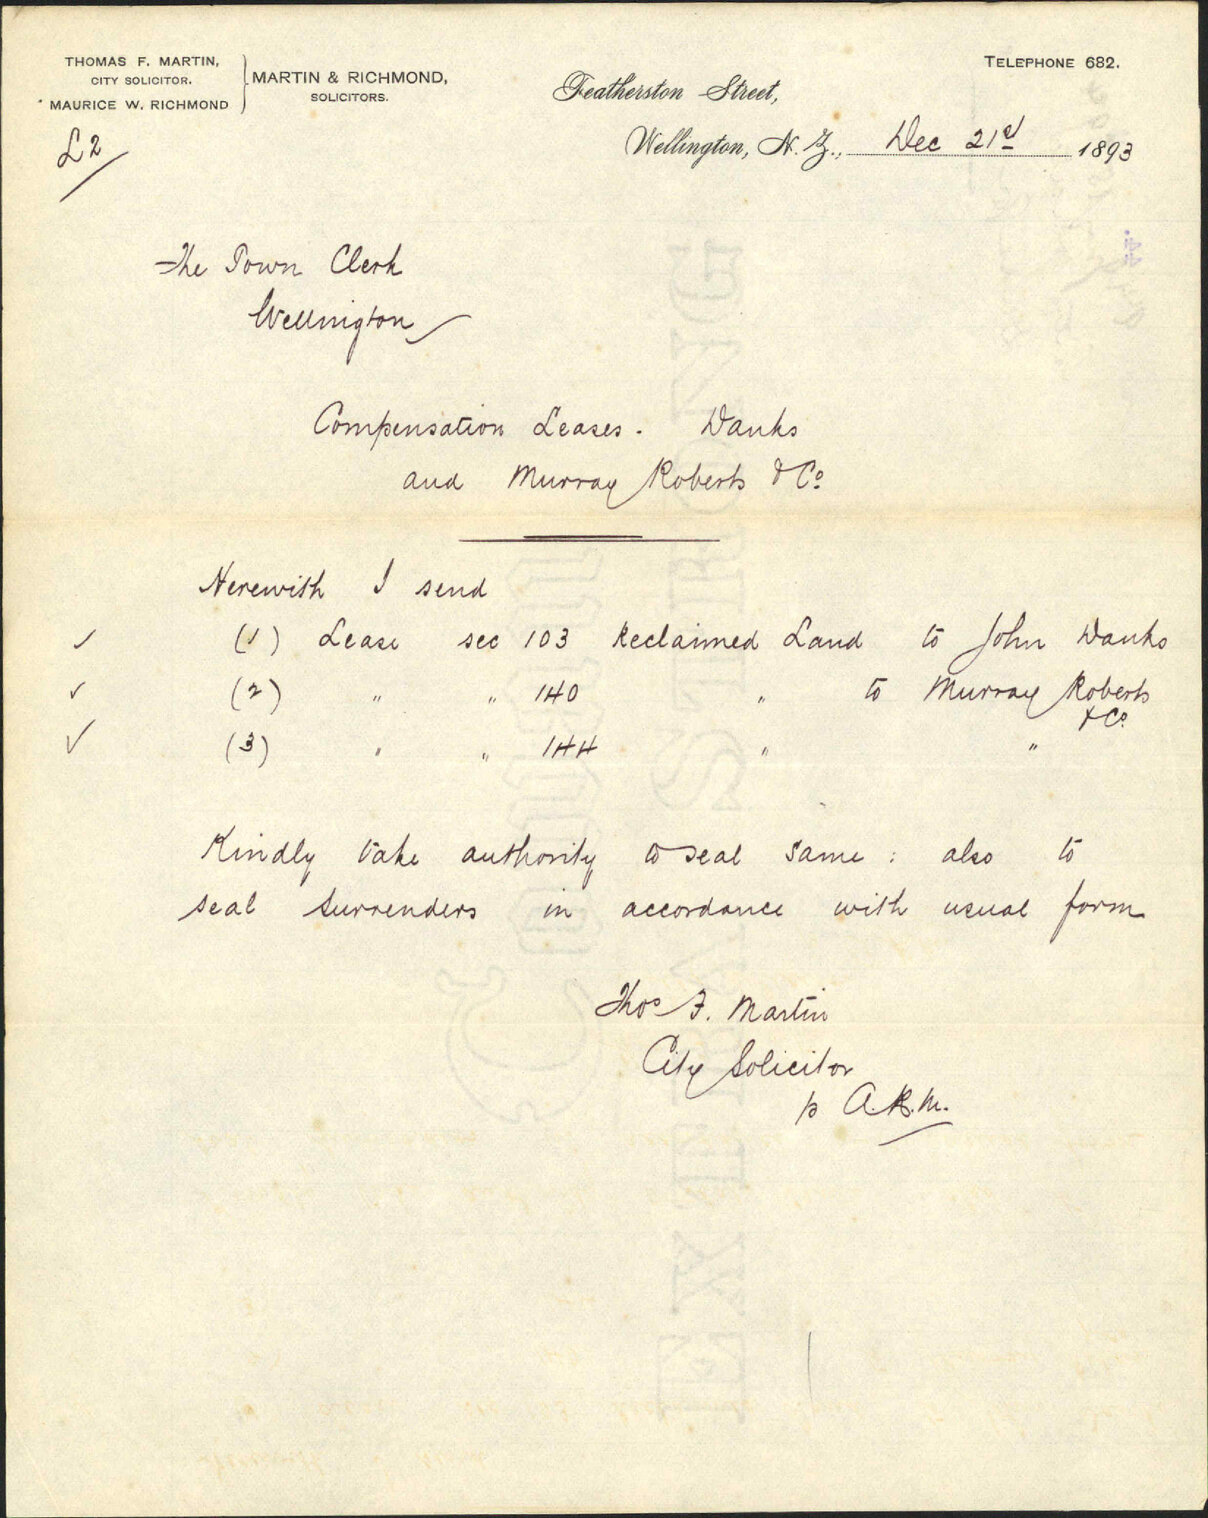 THOMAS F. MARTIN,
CITY SOLICITOR.
MAURICE W. RICHMOND
MARTIN & RICHMOND,
SOLICITORS.
TELEPHONE 682.
Featherston Street,
Wellington, N. Z., Dec 21st 1893
£2
The Town Clerk
Wellington
Compensation Leases. Danks
and Murray Roberts & Co
Herewith I send
✓ (1) Lease sec 103 Reclaimed Land to John Danks
✓ (2) " " 140 " to Murray Roberts
& Co
✓ (3) " " 144 " "
Kindly take authority to seal same : also to
seal surrenders in accordance with usual form
Thos F. Martin
City Solicitor
p A.R.M.